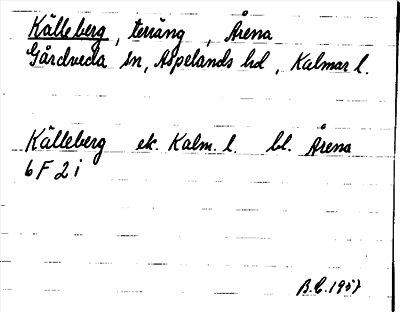 Källeberg, terräng, Årena
Gårdveda sn, Aspelands hd, Kalmar l.
Källeberg ek. Kalm. l. bl. Årena
6 F 2 i
B.E. 1957